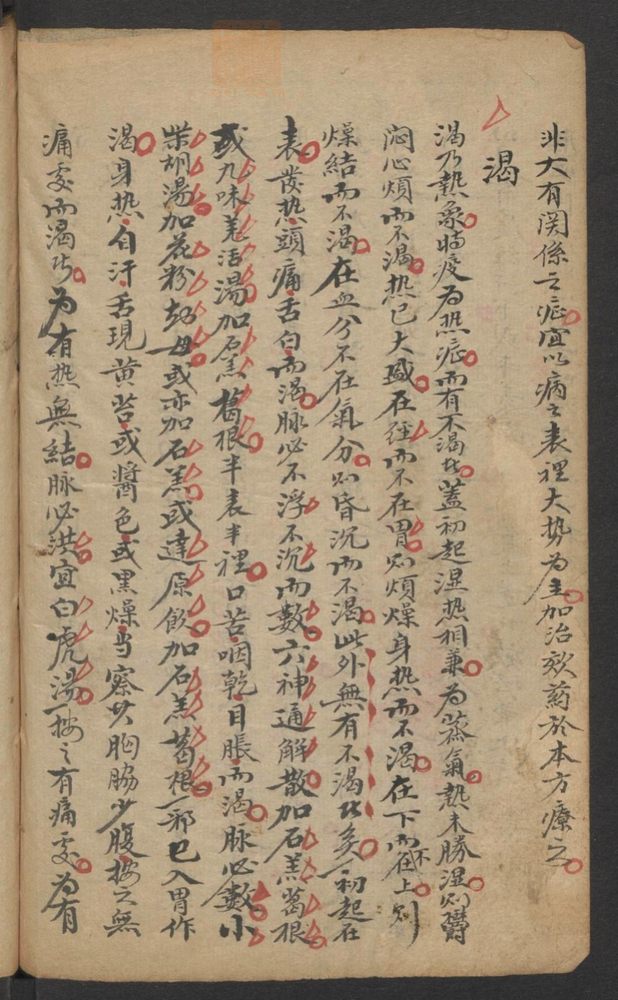 非大有関係之症宜以病之表裡大势為主加治欬药於本方療之
渴
渴乃熱象時疫为热症而有不渴者蓋初起湿热相兼为蒸氣熱未勝湿则欝
闷心煩而不渴热已大盛在经而不在胃则煩燥身热而不渴在下而不在上则
燥結而不渴在血分不在氣分则昏沉而不渴此外無有不渴者矣一初起在
表发热頭痛舌白而渴脉必不浮不沉而數六神通解散加石羔葛根
或九味羌活湯加石羔葛根半表半裡口苦咽乾目脹而渴脉必數小
柴胡湯加花粉知母或亦加石羔或達原飲加石羔葛根一邪已入胃作
渴身热自汗舌現黄苔或醬色或黑燥当察其胸脇少腹按之無
痛處而渴者为有热無結脉必洪宜白虎湯一按之有痛處为有